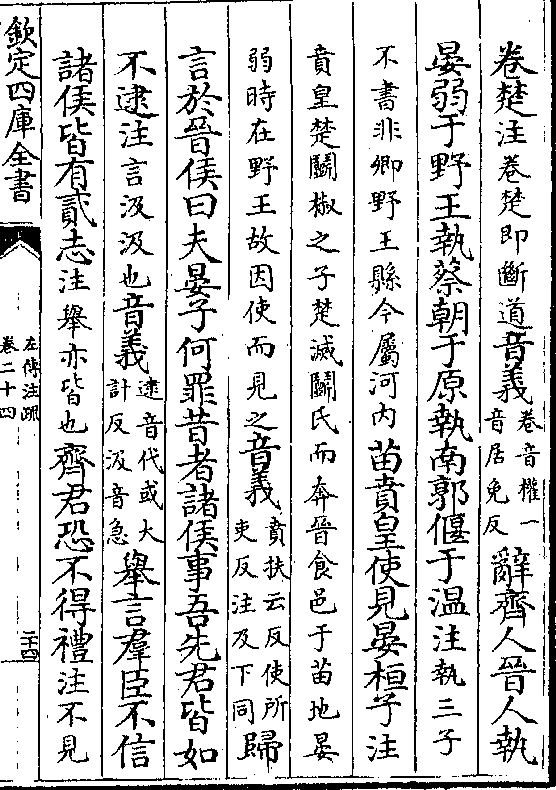 卷楚注卷楚即斷道音義卷音權一音居免反辭齊人晉人執
晏弱于野王執蔡朝于原執南郭偃于溫注執三子
不書非卿野王縣今屬河內苗賁皇使見晏桓子注
賁皇楚鬭椒之子楚滅鬭氏而奔晉食邑于苗地晏
弱時在野王故因使而見之音義賁扶云反使所吏反注及下同歸
言於晉侯曰夫晏子何罪昔者諸侯事吾先君皆如
不逮注言汲汲也音義逮音代或大計反汲音急舉言羣臣不信
諸侯皆有貳志注舉亦皆也齊君恐不得禮注不見
欽定四庫全書
左傳注疏
卷二十四
二十四